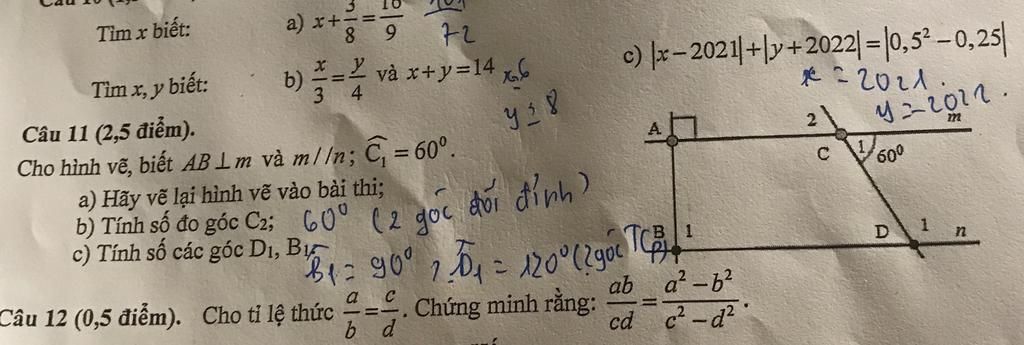 Tìm x biết: a) x + 3/8 = 16/9
72
Tìm x, y biết: b) x/3 = y/4 và x + y = 14
x=6
y = 8
c) |x − 2021| + |y + 2022| = |0,5² − 0,25|
x = 2021.
y = -2022.
Câu 11 (2,5 điểm).
Cho hình vẽ, biết AB ⊥ m và m//n; Ĉ₁ = 60⁰.
a) Hãy vẽ lại hình vẽ vào bài thi;
b) Tính số đo góc C₂; 60⁰ (2 góc đối đỉnh)
c) Tính số các góc D₁, B₁
B₁ = 90⁰, D₁ = 120⁰ (2 góc TCP)
A 2 m
C 1 60⁰
B 1 D 1 n
Câu 12 (0,5 điểm). Cho tỉ lệ thức a/b = c/d. Chứng minh rằng: ab/cd = (a² − b²)/(c² − d²).